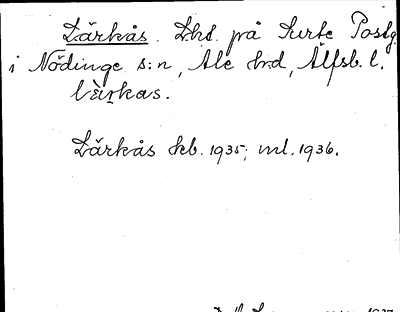 Lärkås. Lht. på Surte Postg.
i Nödinge s:n, Ale hrd, Älfsb. l.
Lärkås skb. 1935; ml. 1936.
1937